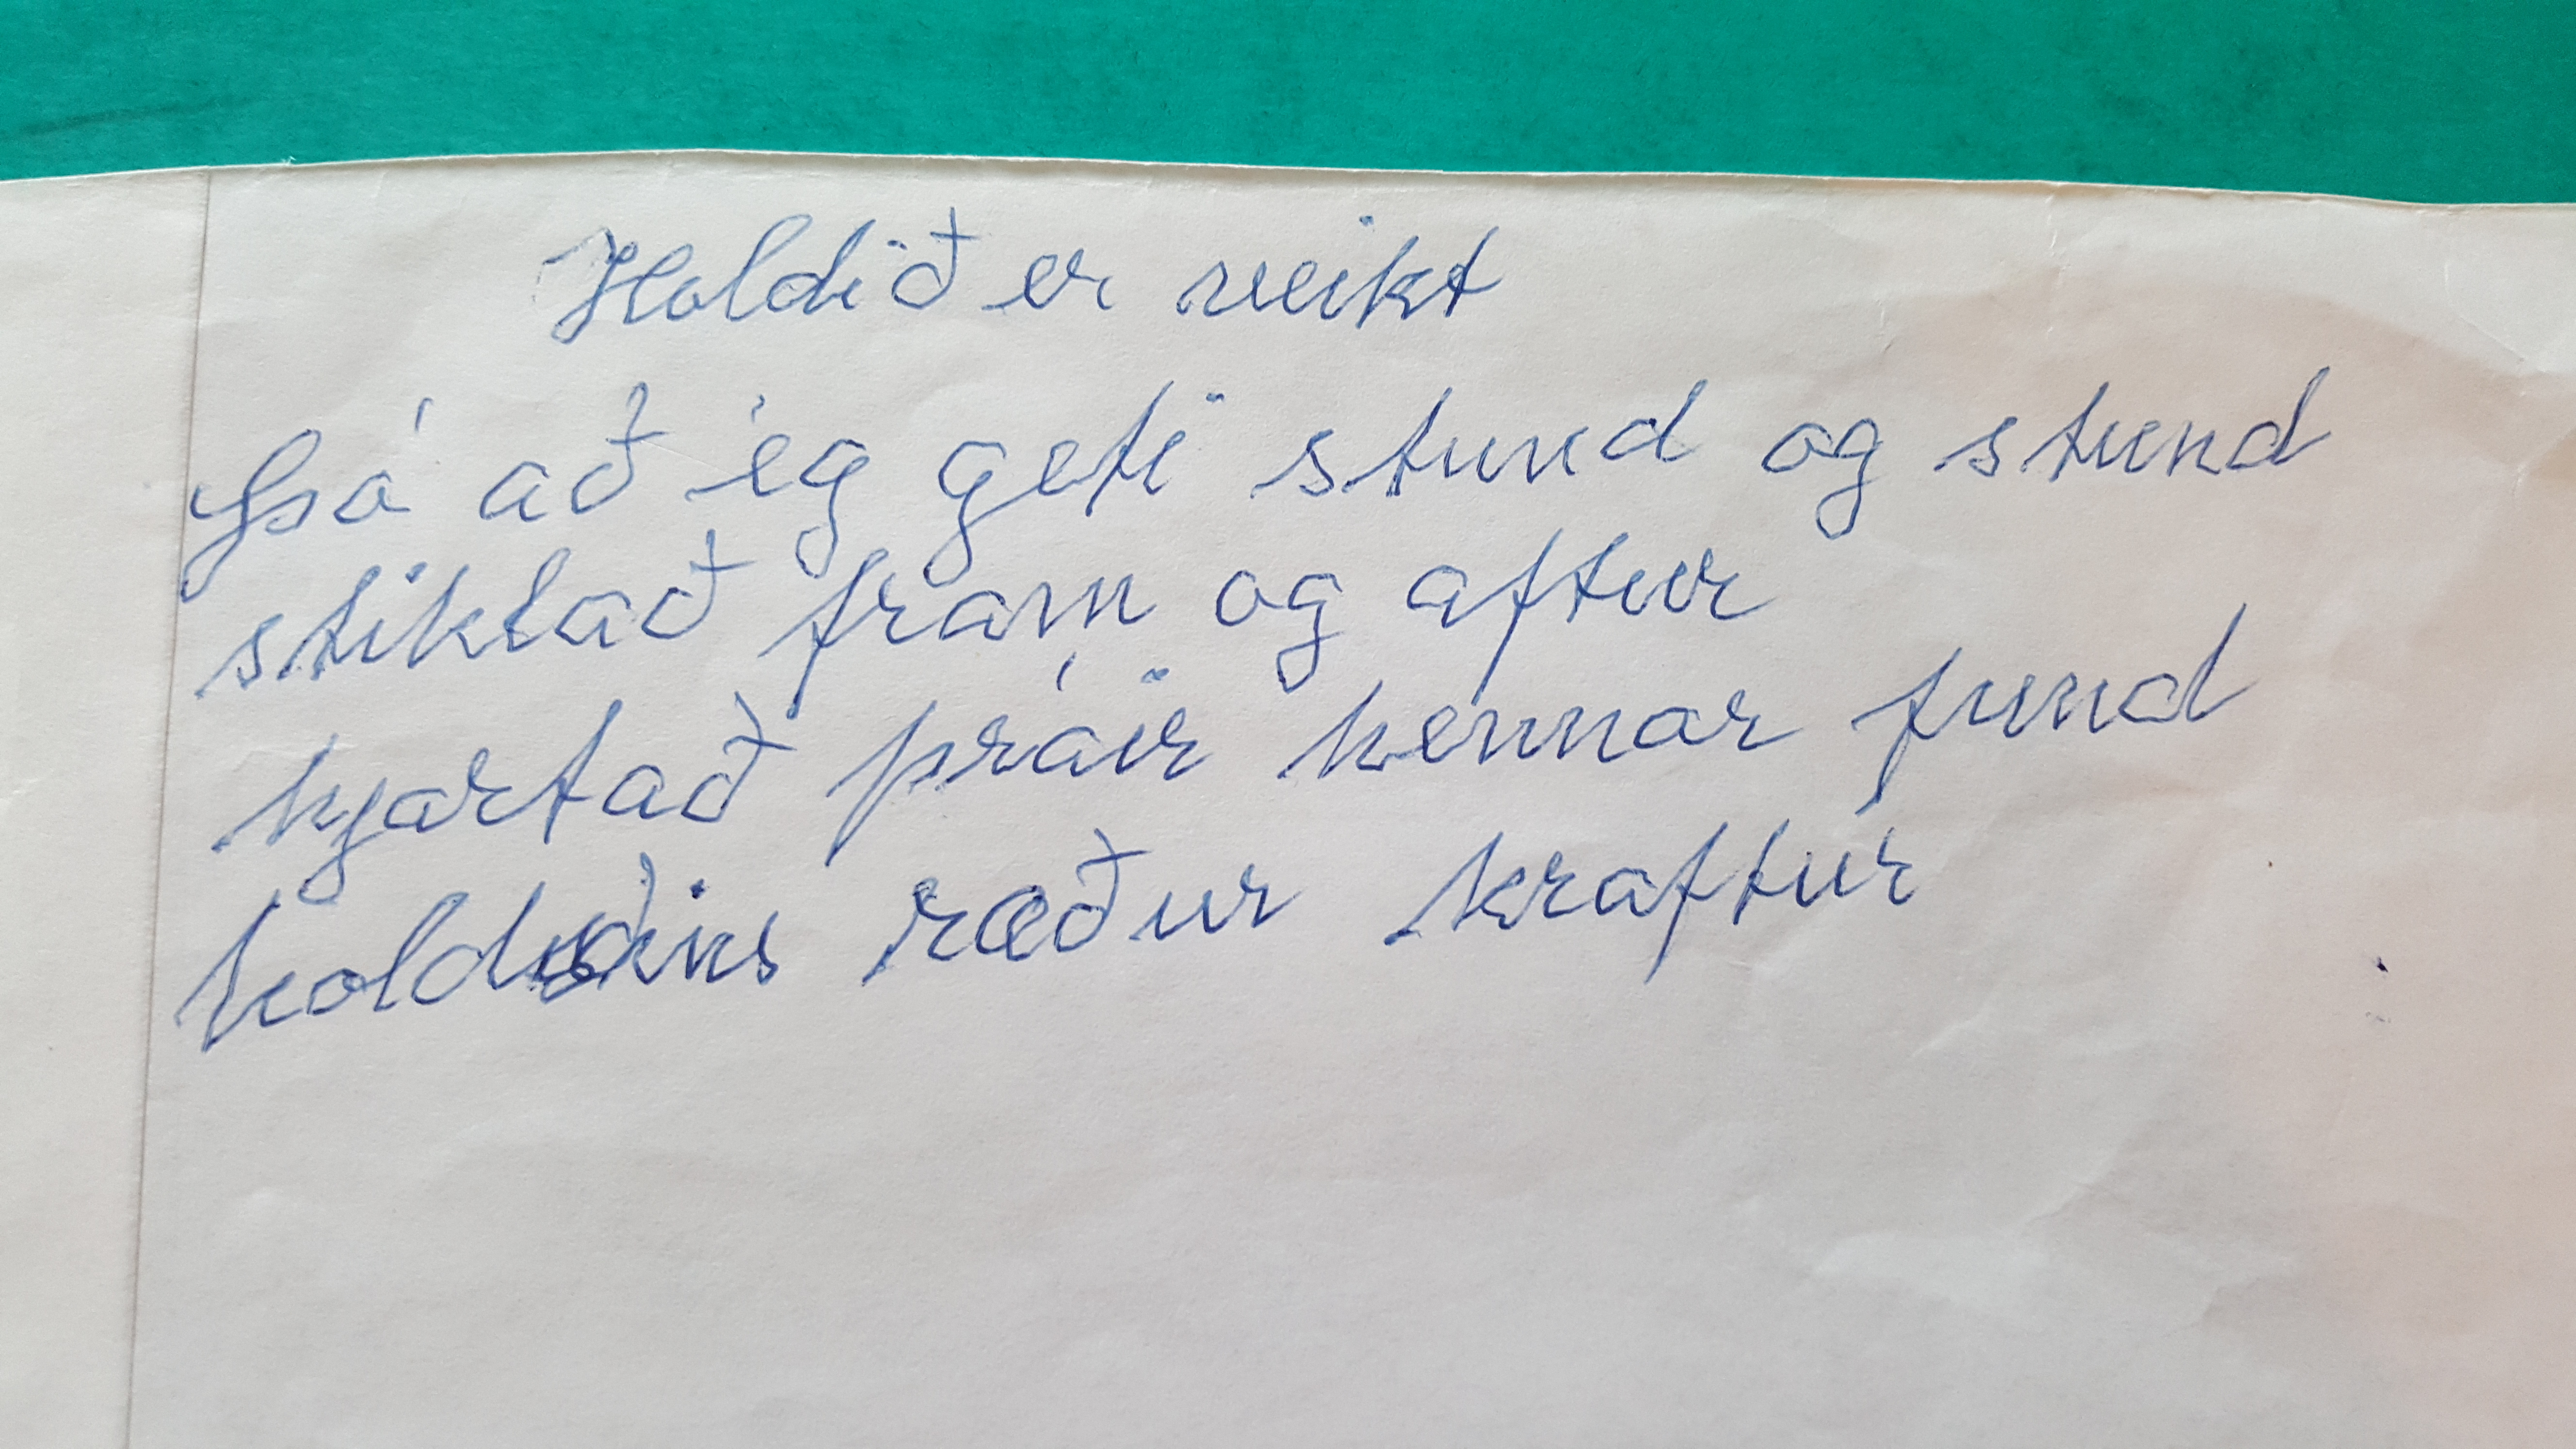 Holdið er veikt
Þó að ég geti stund og stund
stiklað fram og aftur
hjartað þráir hennar fund
holdsins ræður kraftur